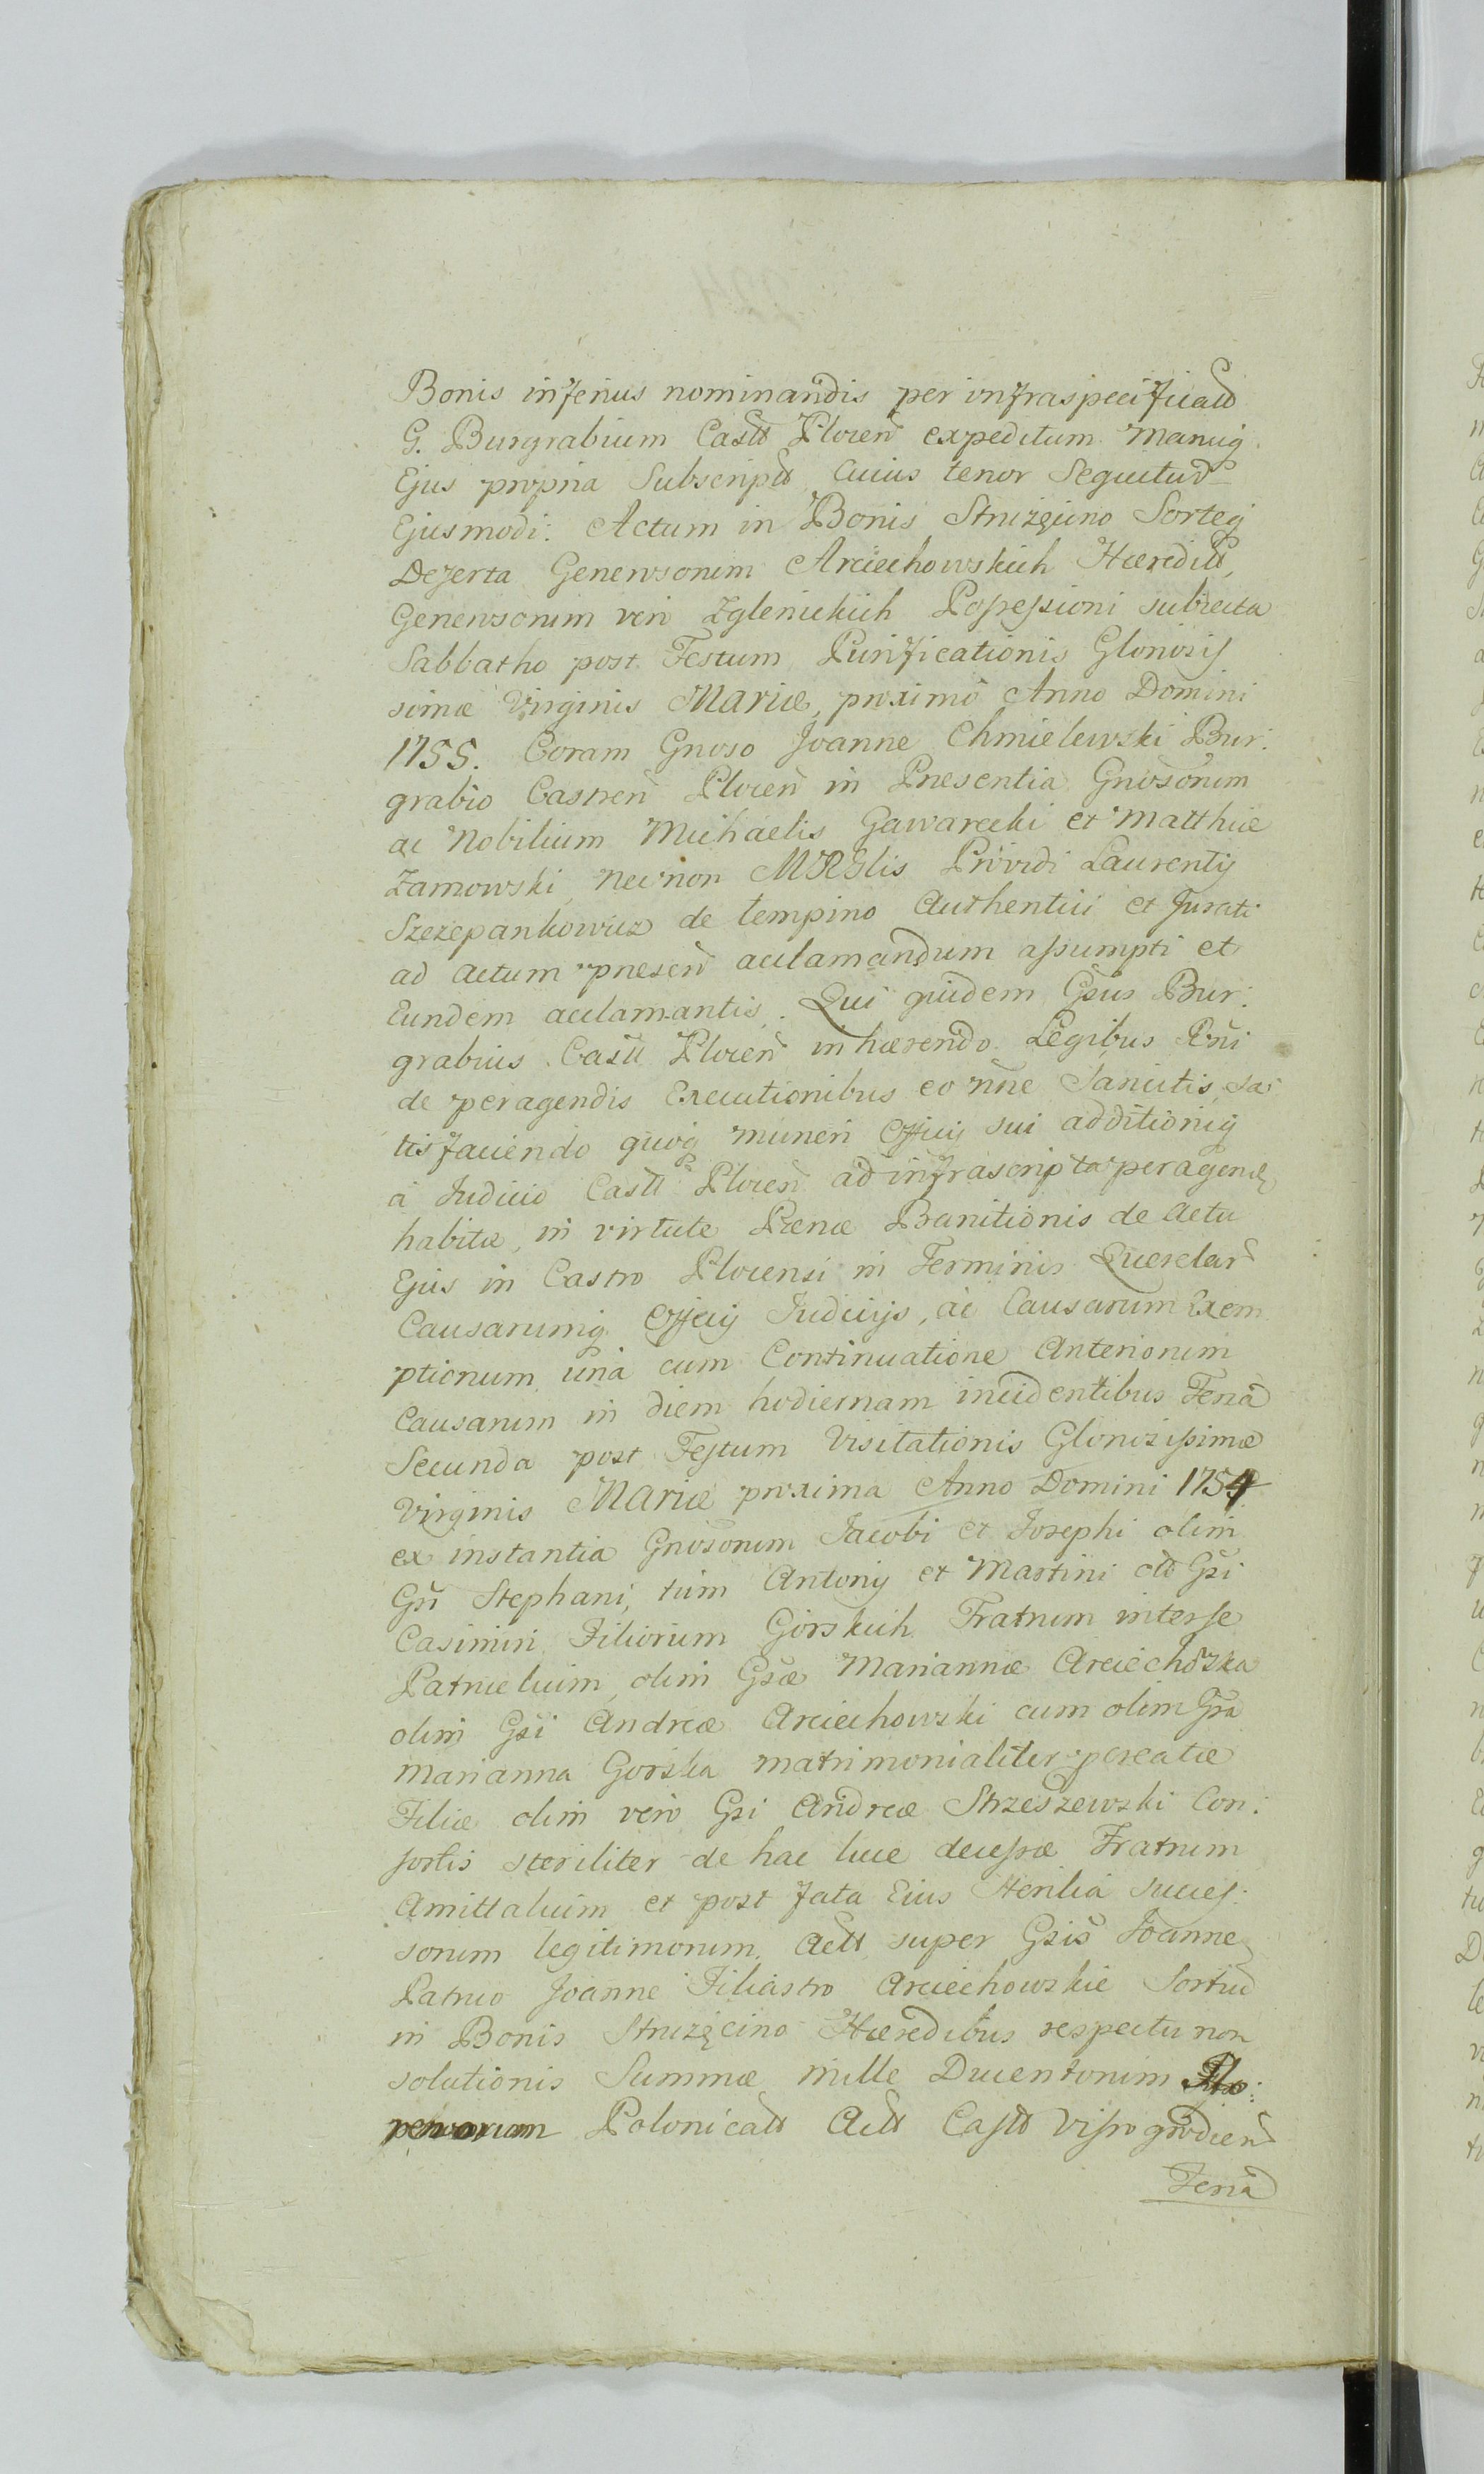 Bonis inferius nominandis per infraspecificatt
G. Burgrabium Castt Plocen expeditum Manuq
Ejus propria Subscriptt Cuius tenor Sequitur
Ejusmodi: Actum in Bonis Strużęcino Sorteq
Dezerta Generosorum Arciechowskich Hæreditt,
Generosorum vero Zglenickich Possessioni subiecta
Sabbatho post Festum Purificationis Gloriosis
simæ Virginis Mariæ, proximo Anno Domini
1755. Coram Gnoso Joanne Chmielewski Bur:
grabio Castren Plocen in Præsentia Gnosorum
ac Nobilium Michaelis Gawarecki et Matthiæ
Zamowski, necnon Mrglis Providi Laurentij
Szczepankowicz de Lempino Authentici et Jurati
ad actum præsen acclamandum assumpti et
Eundem acclamantis. Qui quidem Gsus Bur:
grabius Castt Plocen inhærendo Legibus Rni
de peragendis Executionibus eo nne Sancitis, Sa:
tisfaciendo quoq muneri Officij sui additioniq
a Judicio Castt Plocen ad infrascripta peragend
habitæ, in virtute Pænæ Banitionis de actu
Ejus in Castro Plocensi in Terminis Querelar
Causarumq Officij Judicijs, ac Causarum Exem
ptionum una cum Continuatione Anteriorum
Causarum in diem hodiernam incidentibus Feria
Secunda post Festum Visitationis Gloriosissimæ
Virginis Mariæ proxima Anno Domini 1754
ex instantia Gnosorum Jacobi et Josephi olim
Gsi Stephani, tum Antonij et Martini olt Gsi
Casimiri Filiorum Gorskich Fratrum inter se
Patruelium, olim Gsæ Mariannæ Arciechoszka
olim Gsi Andreæ Arciechowski cum olim Gsa
Marianna Gorska matrimonialiter pcreatæ
Filiæ olim vero Gsi Andreæ Strzeszewski Con:
sortis steriliter de hac luce decessæ Fratrum
Amittalium et post fata Eius Sterilia Succes:
sorum legitimorum. Actt super Gsis Joanne
Patruo Joanne Filiastro Arciechowskie Sortiu
in Bonis Strużęcino Hæredibus respectu non
solutionis Summæ mille Ducentorum Flo:
renorum Polonicatt Actt Castt Vissogrodien
Feria